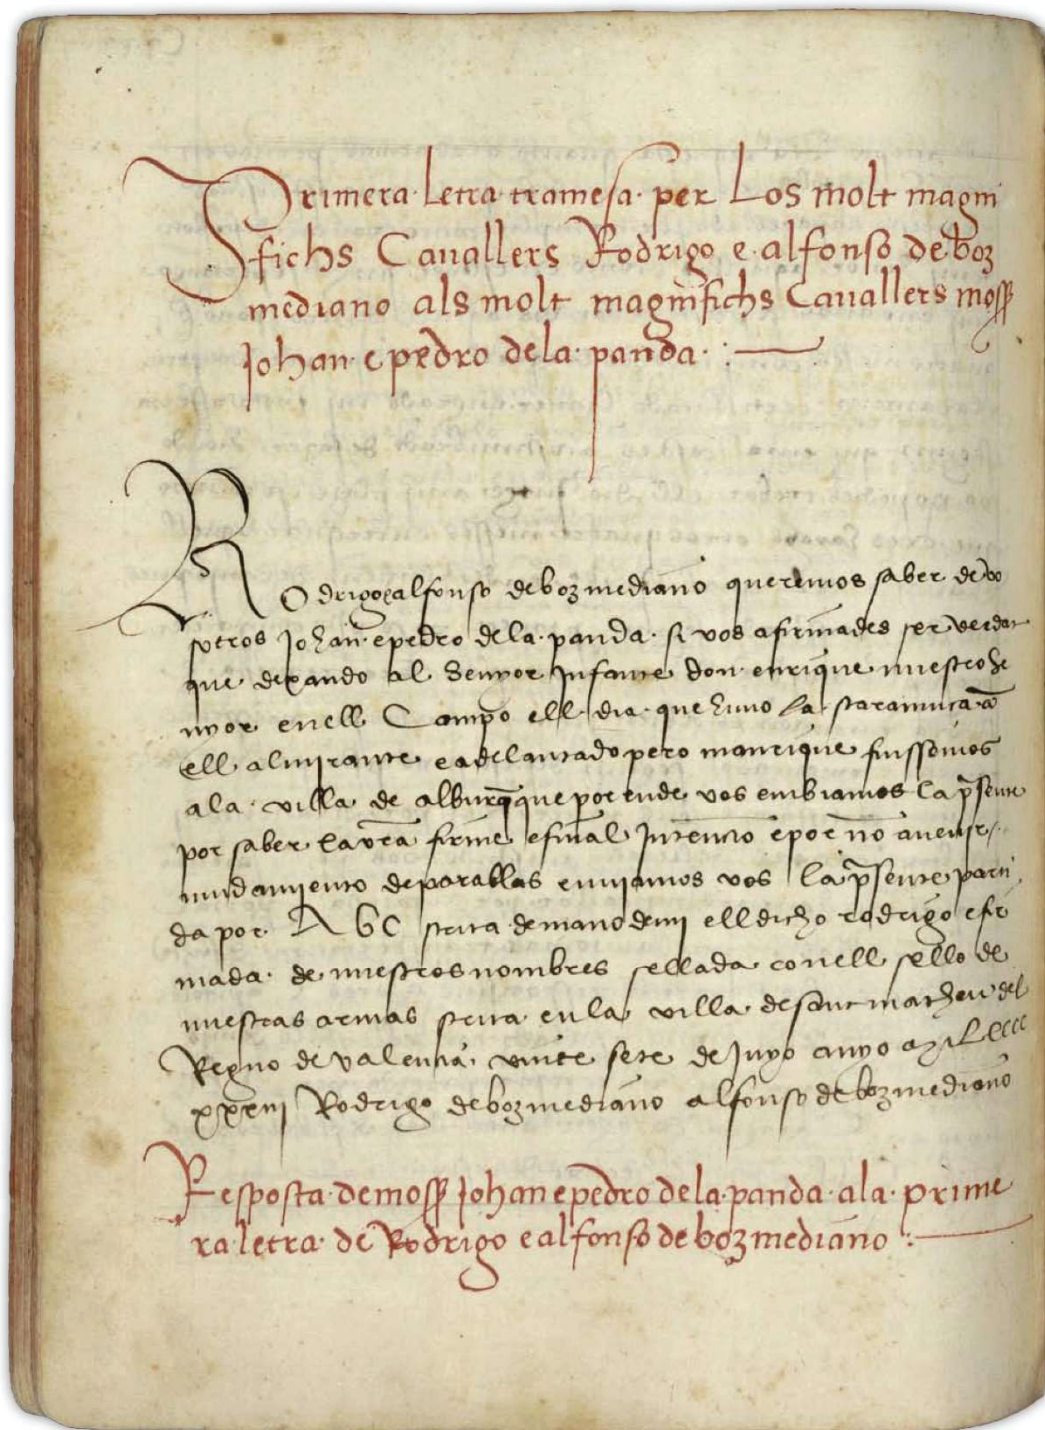 Primera letra tramesa per Los molt magni
fichs Cauallers Rodrigo e alfonso de boz
mediano als molt magnifichs Cauallers moss
Johan e pedro de la panda
ROdrigo e alfonso de bozmediano queremos saber de vo
sotros Johan e pedro de la panda si vos afirmades ser verdat
que dexando al Senyor Infante don enrique nuestro Se
nyor en ell Campo ell dia que huuo la scaramuça a
ell almirante e adelantado pero manrique fuissemos
a la villa de alburqueque por ende vos embiamos la p̃sente
por saber la vr̃a firme e final Intencio e por no auer
mudamiento de parablas enuiamos vos la p̃sente parti
da por A b c scrita de mano de mi ell dicho rodrigo e fir
mada de nuestros nombres sellada con ell sello de
nuestras armas scrita en la villa de sant matheu del
Regno de valencia vinte sete de Juyo anyo Mil cccc
xxxiij Rodrigo de bozmediano alfonso de bozmediano
Resposta de moss Johan e pedro de la panda a la prime
ra letra de Rodrigo e alfonso de bozmediano